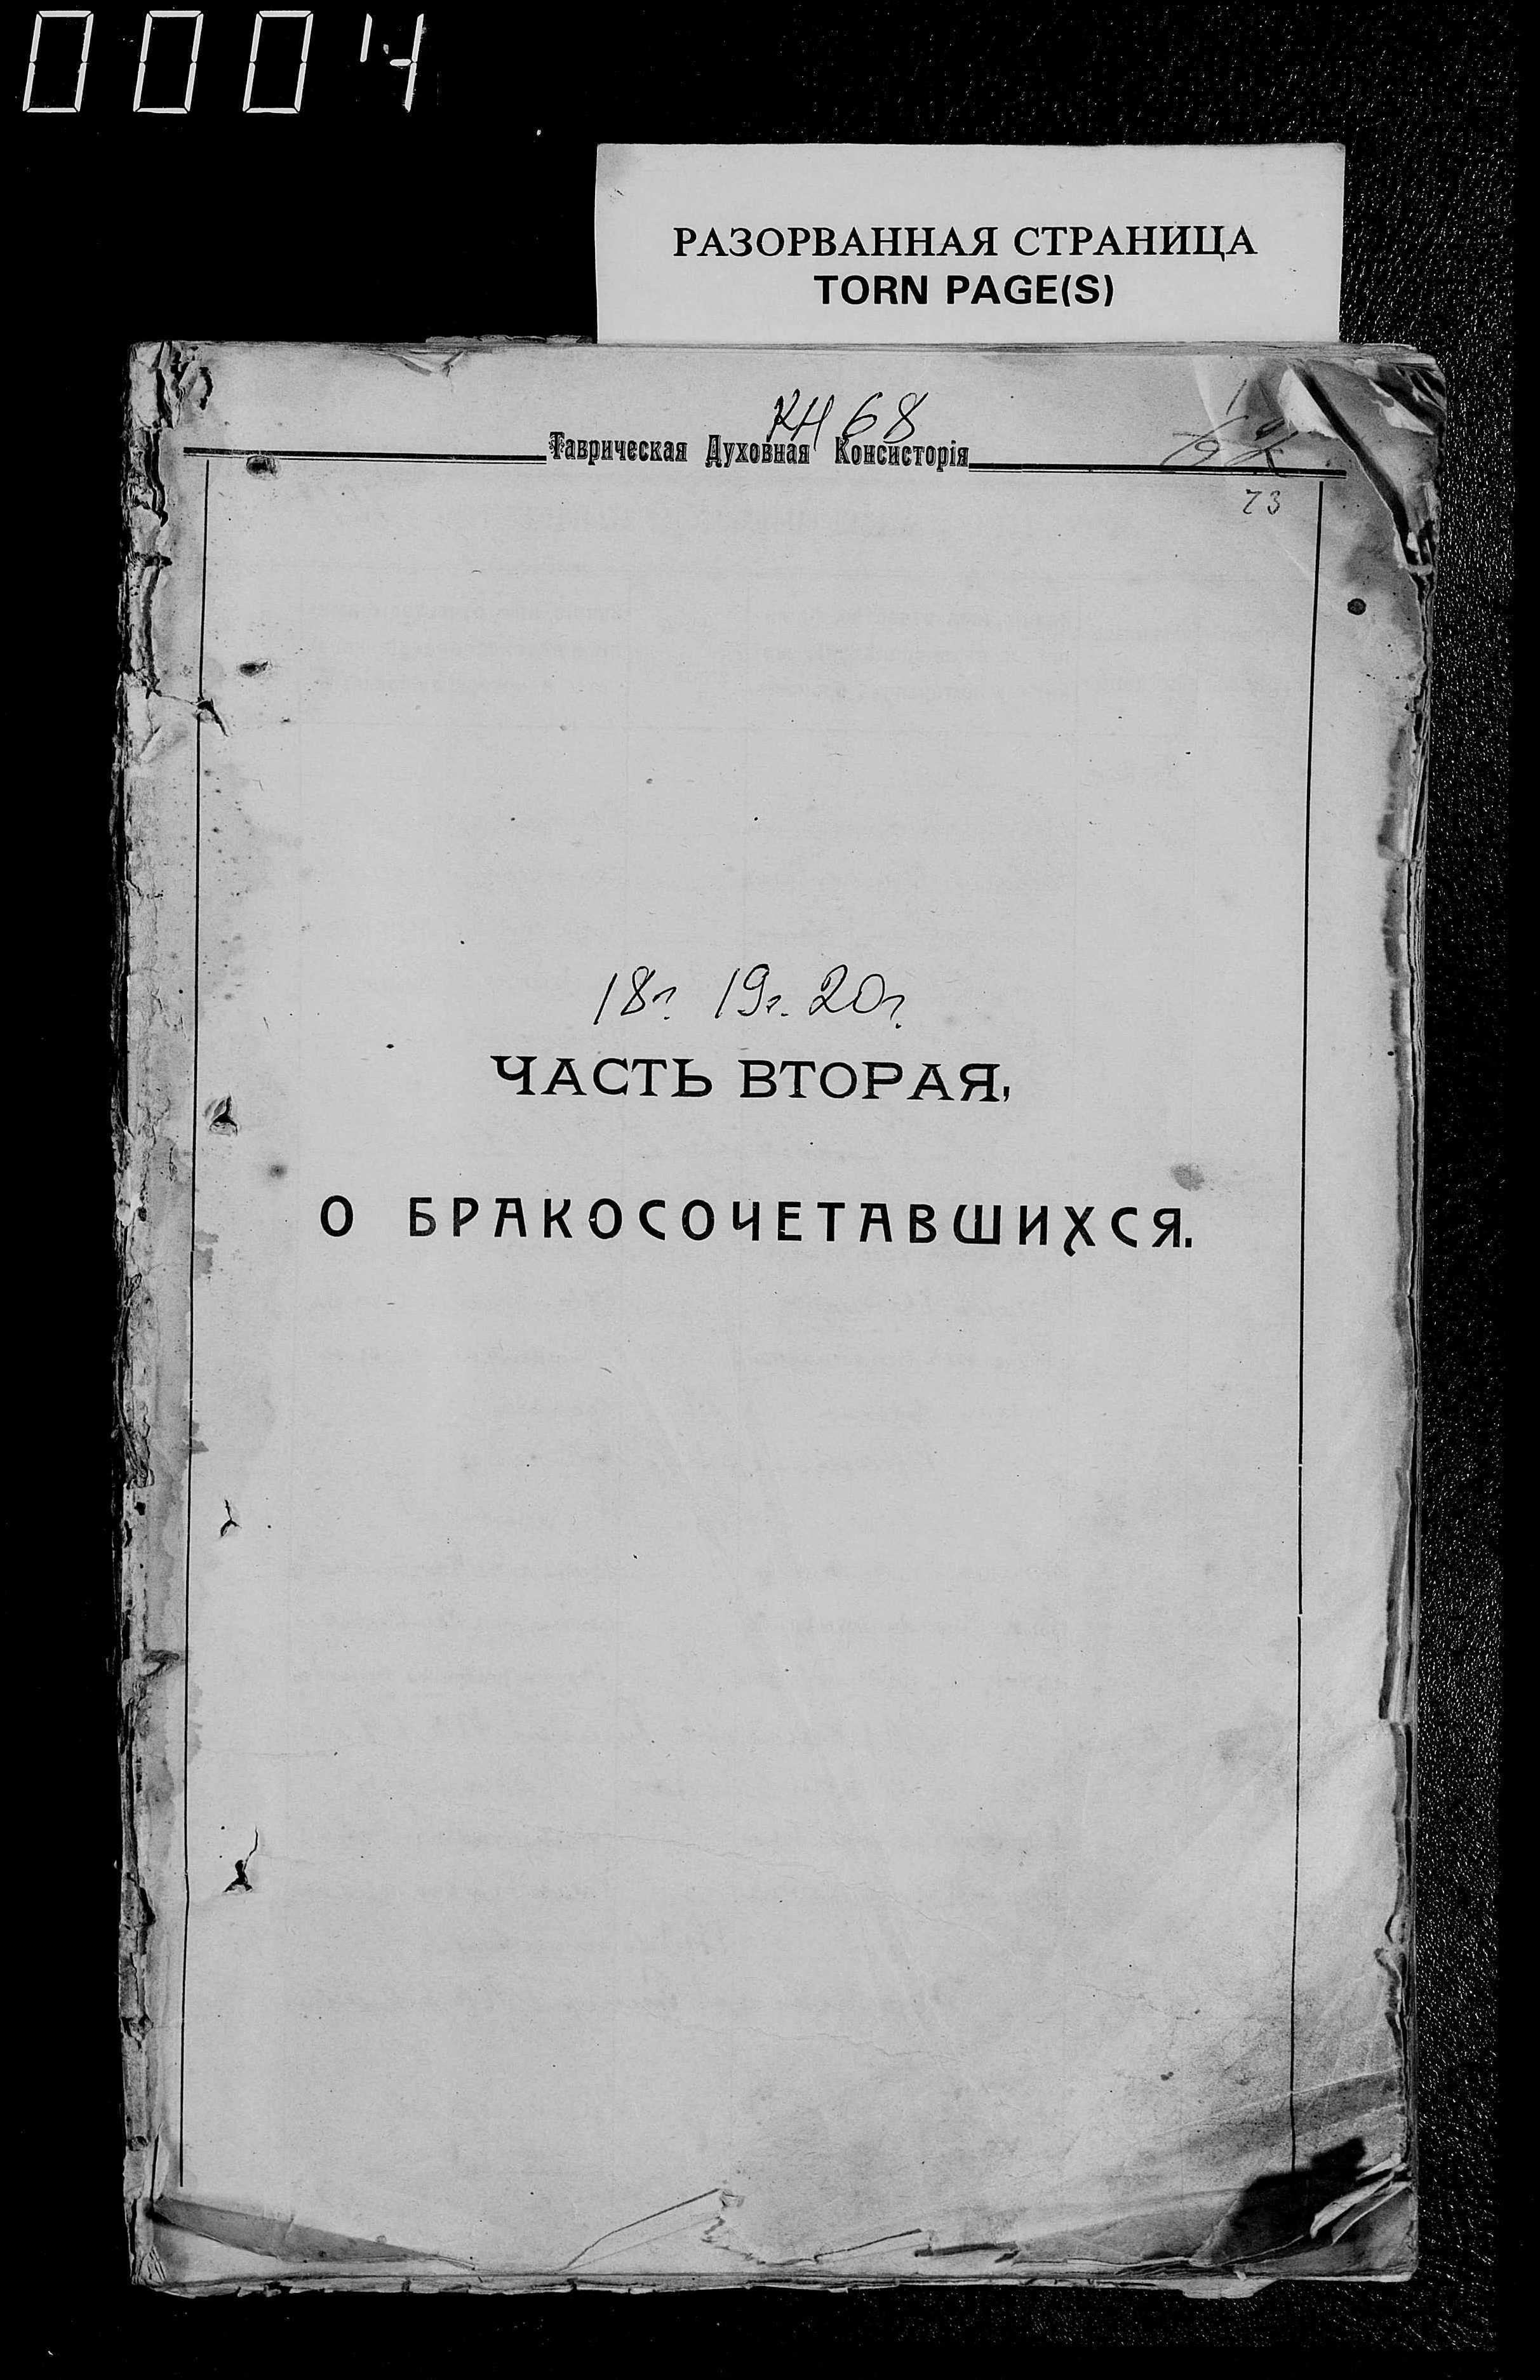 0004
РАЗОРВАННАЯ СТРАНИЦА
TORN PAGE(S)
КН 68
Таврическая Духовная Консисторія
73
18г. 19г. 20г.
ЧАСТЬ ВТОРАЯ,
О БРАКОСОЧЕТАВШИХСЯ.